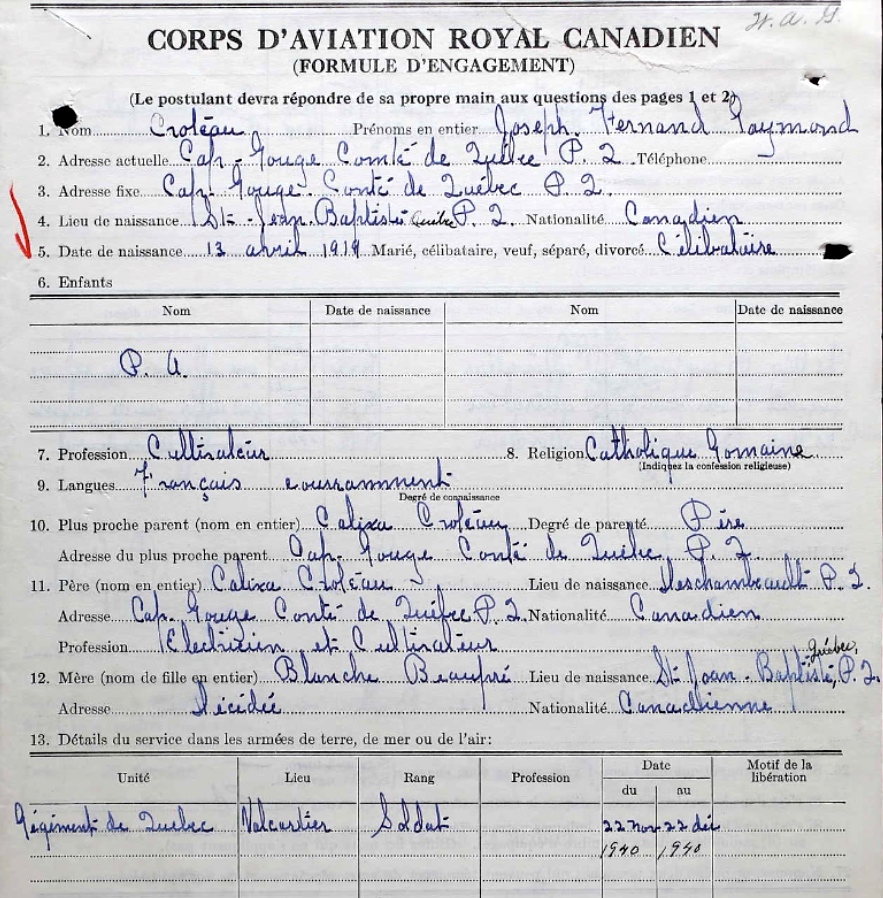 H. a. G.
CORPS D'AVIATION ROYAL CANADIEN
(FORMULE D'ENGAGEMENT)
(Le postulant devra répondre de sa propre main aux questions des pages 1 et 2)
1. Nom Croteau Prénoms en entier Joseph. Fernand Raymond
2. Adresse actuelle Cap-Rouge Comté de Québec P.Q. Téléphone
3. Adresse fixe Cap-Rouge. Conté de Québec P.Q.
4. Lieu de naissance St-Jean Baptiste Québec P.Q. Nationalité Canadien
5. Date de naissance 13 avril 1919 Marié, célibataire, veuf, séparé, divorcé Célibataire
6. Enfants
Nom Date de naissance Nom Date de naissance
P. A.
7. Profession Cultivateur 8. Religion Catholique Romaine
(Indiquez la confession religieuse)
9. Langues Français couramment
Degré de connaissance
10. Plus proche parent (nom en entier) Calixa Croteau Degré de parenté Père
Adresse du plus proche parent Cap-Rouge Conté de Québec, P.Q.
11. Père (nom en entier) Calixa Croteau Lieu de naissance Deschambeault P.Q.
Adresse Cap-Rouge Conté de Québec P.Q. Nationalité Canadien
Profession Electricien et Cultivateur
12. Mère (nom de fille en entier) Blanche Beaupré Lieu de naissance St-Jean-Baptiste, Québec, P.Q.
Adresse Décédée Nationalité Canadienne
13. Détails du service dans les armées de terre, de mer ou de l'air:
Unité Lieu Rang Profession Date du au Motif de la libération
Régiment de Québec Valcartier Soldat 22 nov 22 déc
1940 1940